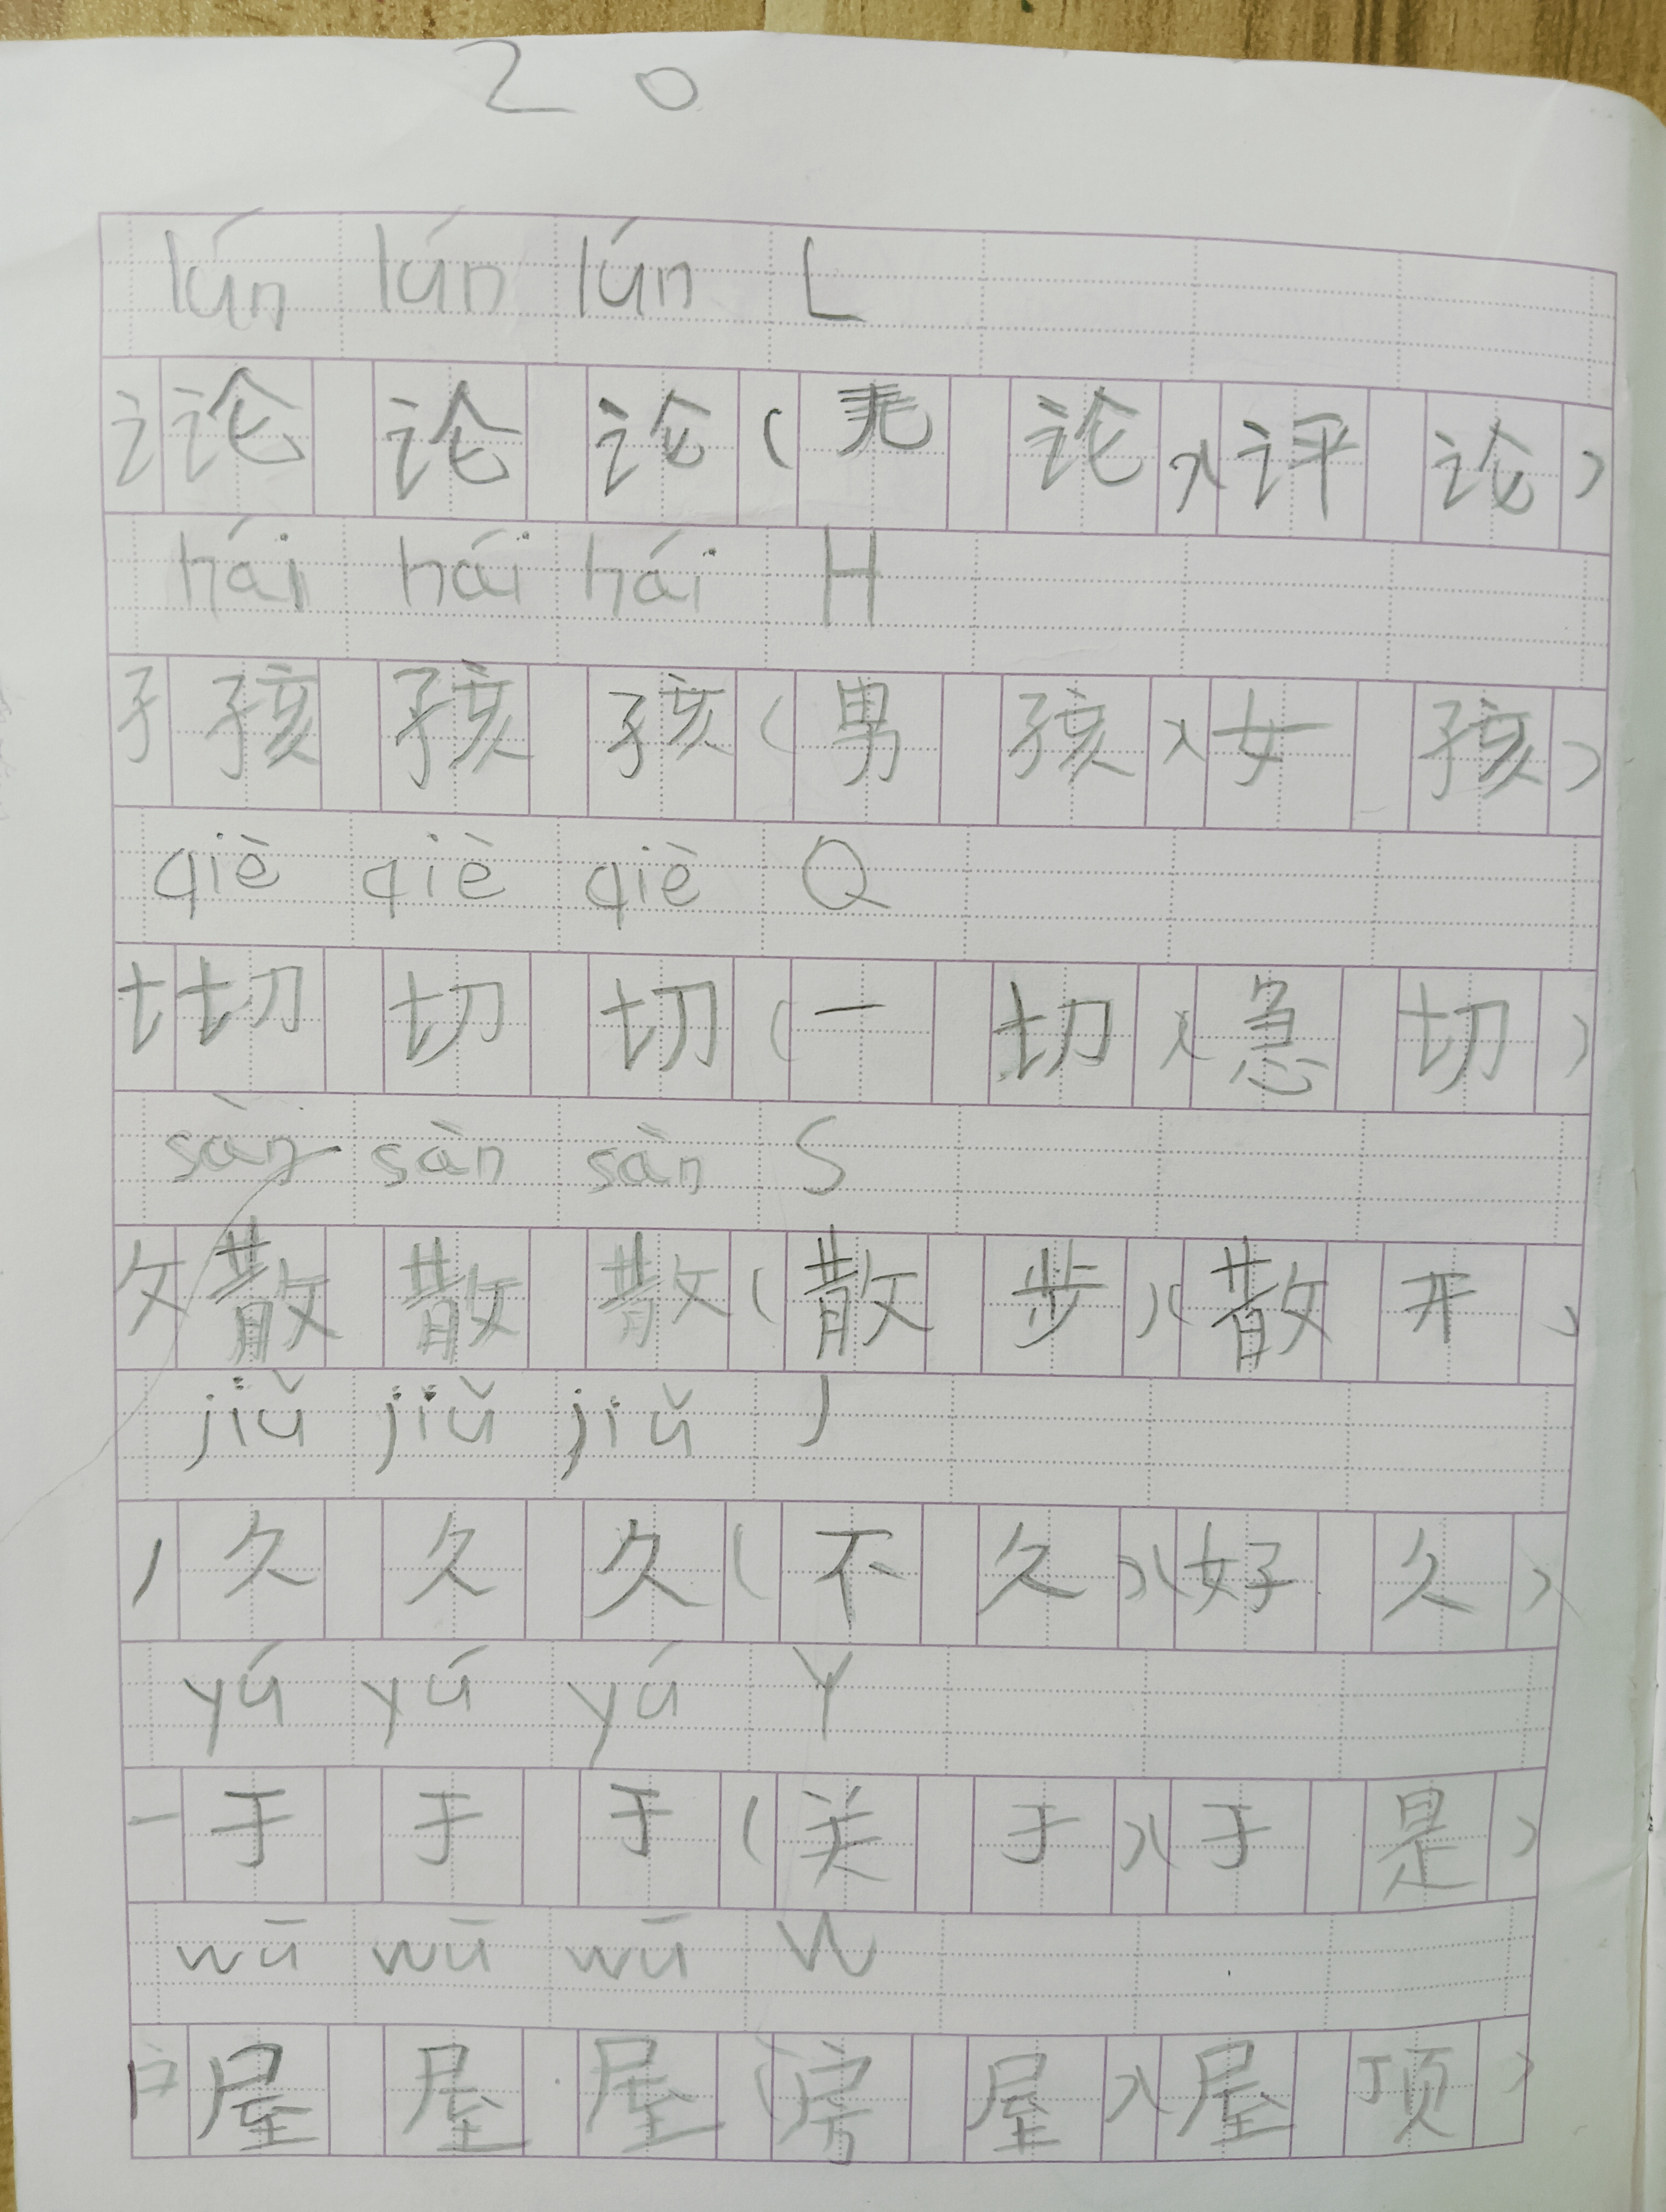 20
lún lún lún L
讠论 论 论(无 论)(评 论)
hái hái hái H
孑孩 孩 孩(男 孩)(女 孩)
qiè qiè qiè Q
切 切 切(一 切)(急 切)
sàn sàn sàn S
攵散 散 散(散 步)(散 开)
jiǔ jiǔ jiǔ J
丿久 久 久(不 久)(好 久)
yú yú yú Y
一于 于 于(关 于)(于 是)
wū wū wū W
户屋 屋 屋(房 屋)(屋 顶)